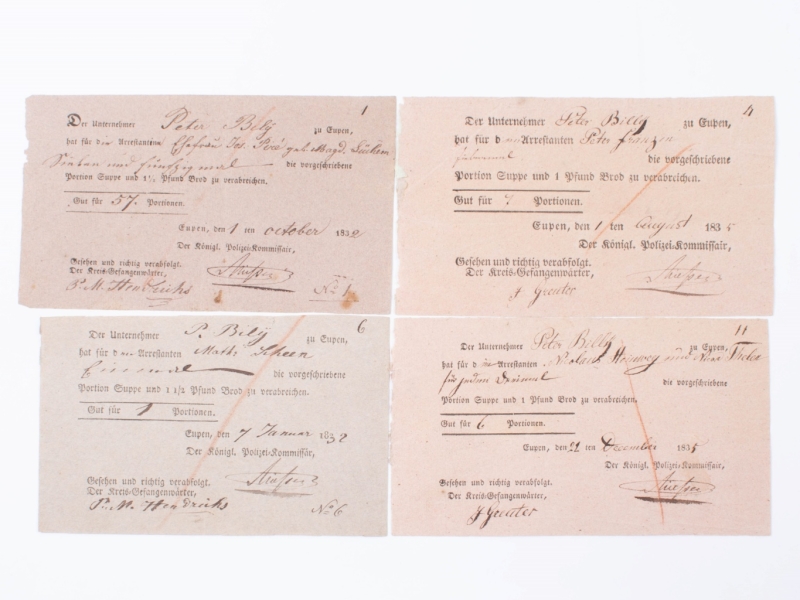 1
Der Unternehmer Peter Billy zu Eupen,
hat für die Arrestantine Ehefrau Jos. geb. Magd.
Sieben und fünfzigmal die vorgeschriebene
Portion Suppe und 1½ Pfund Brod zu verabreichen.
Gut für 57. Portionen.
Eupen, den 1 ten October 1832
Der Königl. Polizei-Kommissair,
Gesehen und richtig verabfolgt.
Der Kreis-Gefangenwärter,
P. M. Hendricks
No 1
4
Der Unternehmer Peter Billy zu Eupen,
hat für den Arrestanten Peter Franzen
die vorgeschriebene
Portion Suppe und 1 Pfund Brod zu verabreichen.
Gut für 7 Portionen.
Eupen, den 1 ten August 1835
Der Königl. Polizei-Kommissair,
Gesehen und richtig verabfolgt.
Der Kreis-Gefangenwärter,
J Greuter
6
Der Unternehmer P. Billy zu Eupen,
hat für den Arrestanten Math. Scheen
Einmal die vorgeschriebene
Portion Suppe und 1 1/2 Pfund Brod zu verabreichen.
Gut für 1 Portionen.
Eupen, den 7 Januar 1832
Der Königl. Polizei-Kommissär,
Gesehen und richtig verabfolgt.
Der Kreis-Gefangenwärter,
P. M. Hendricks
No 6
11
Der Unternehmer Peter Billy zu Eupen,
hat für die Arrestanten und
für jeden Dreimal die vorgeschriebene
Portion Suppe und 1 Pfund Brod zu verabreichen.
Gut für 6 Portionen.
Eupen, den 21 ten December 1835
Der Königl. Polizei-Kommissair,
Gesehen und richtig verabfolgt.
Der Kreis-Gefangenwärter,
J Greuter